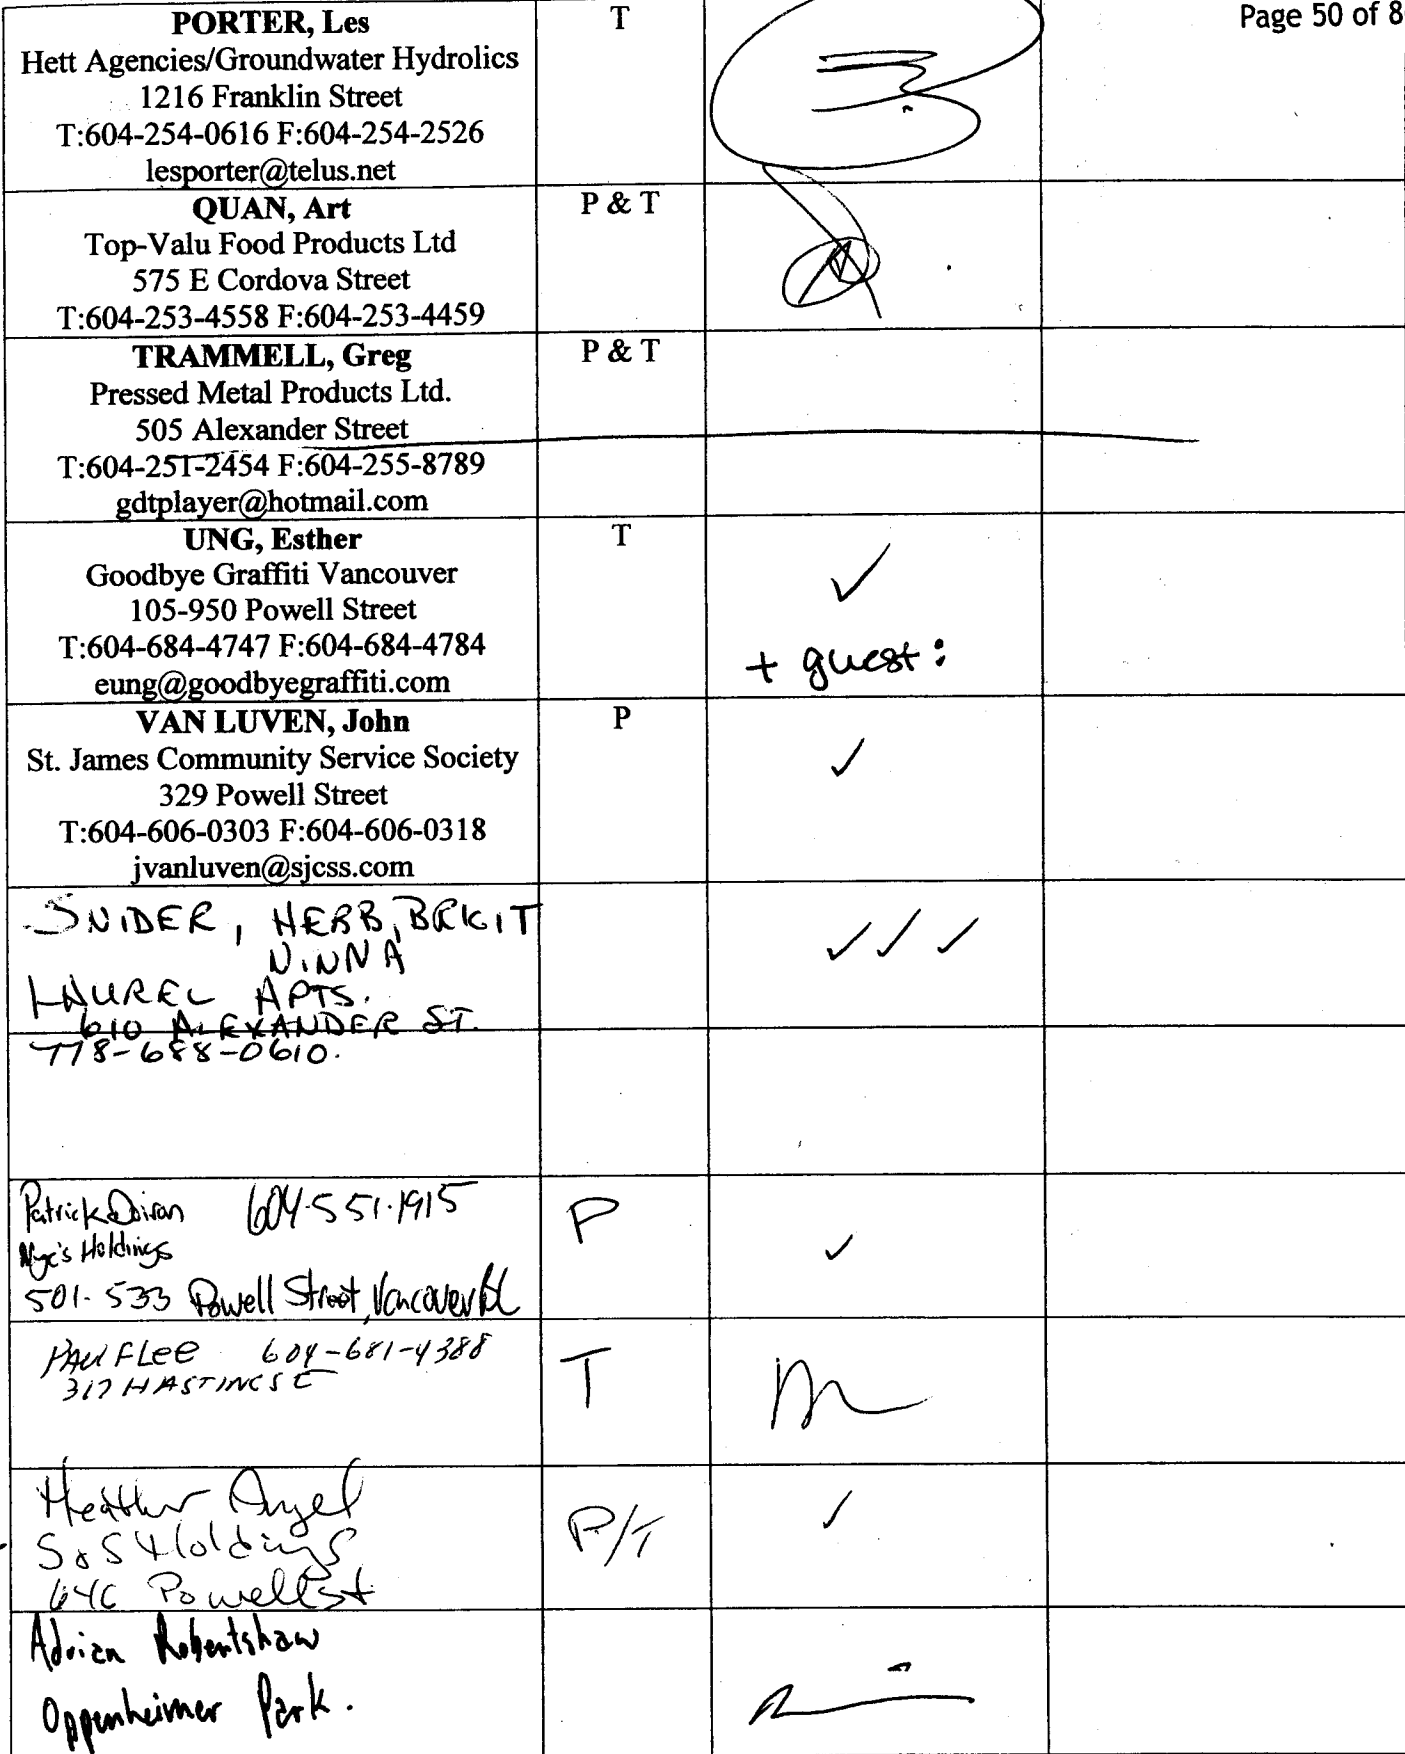 Page 50 of 8
PORTER, Les
T
Hett Agencies/Groundwater Hydrolics
1216 Franklin Street
T:604-254-0616 F:604-254-2526
lesporter@telus.net
QUAN, Art
P & T
Top-Valu Food Products Ltd
575 E Cordova Street
T:604-253-4558 F:604-253-4459
TRAMMELL, Greg
P & T
Pressed Metal Products Ltd.
505 Alexander Street
T:604-251-2454 F:604-255-8789
gdtplayer@hotmail.com
UNG, Esther
T
✓
Goodbye Graffiti Vancouver
105-950 Powell Street
T:604-684-4747 F:604-684-4784
+ guest:
eung@goodbyegraffiti.com
VAN LUVEN, John
P
✓
St. James Community Service Society
329 Powell Street
T:604-606-0303 F:604-606-0318
jvanluven@sjcss.com
SNIDER, HERB, BRKIT
✓ ✓ ✓
NINNA
LAUREL APTS.
610 ALEXANDER ST.
778-688-0610.
Patrick Doiran 604-551-1915
P
✓
Holdings
501-533 Powell Street, Vancouver BC
PAUL F LEE 604-681-4388
T
317 HASTINGS E
Heather Angel
P/T
✓
S&S Holdings
646 Powell St
Adrian Robertshaw
Oppenheimer Park.